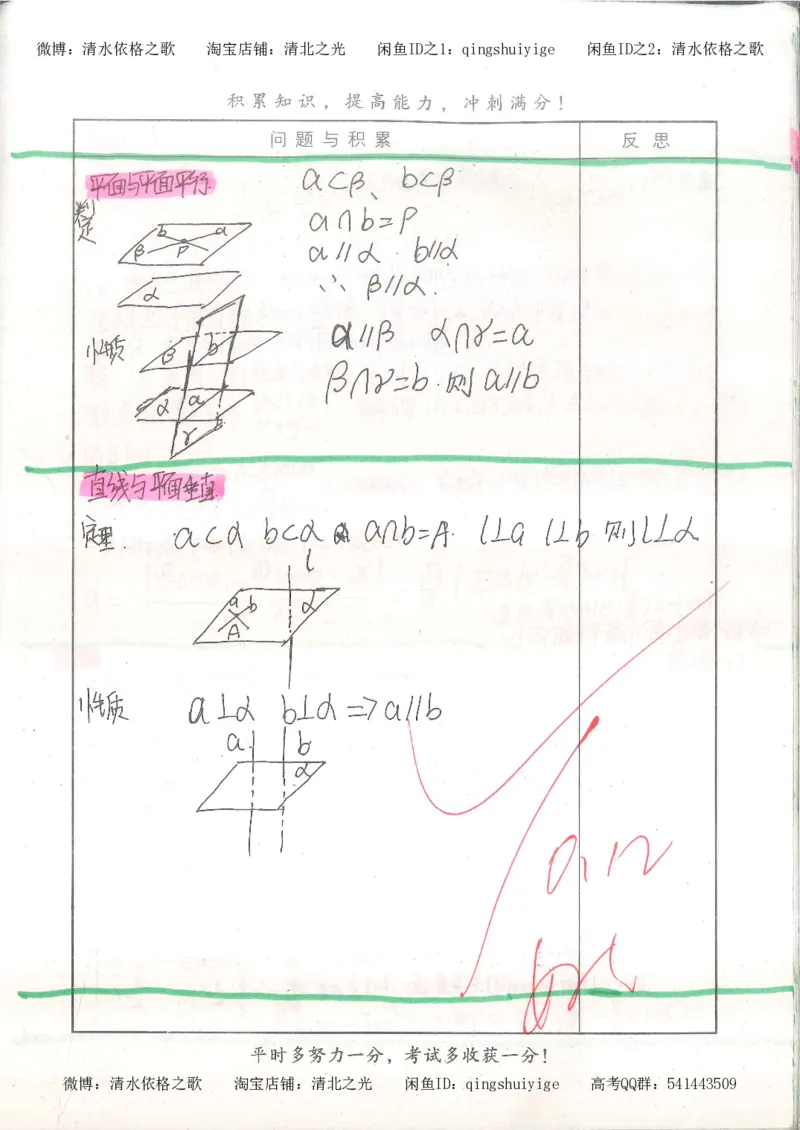 微博：清水依格之歌 淘宝店铺：清北之光 闲鱼ID之1：qingshuiyige 闲鱼ID之2：清水依格之歌
积累知识，提高能力，冲刺满分！
问题与积累 反思
平面与平面平行
a⊂β、b⊂β
判定
a∩b=P
b a
β P
a//α b//α
α
∴ β//α
性质
α//β α∩γ=a
β b
β∩γ=b.则 a//b
α a
γ
直线与平面垂直
定理. a⊂α b⊂α a∩b=A. l⊥a l⊥b 则 l⊥α
l
a b α
A
性质 a⊥α b⊥α => a//b
a b
α
平时多努力一分，考试多收获一分！
微博：清水依格之歌 淘宝店铺：清北之光 闲鱼ID：qingshuiyige 高考QQ群：541443509